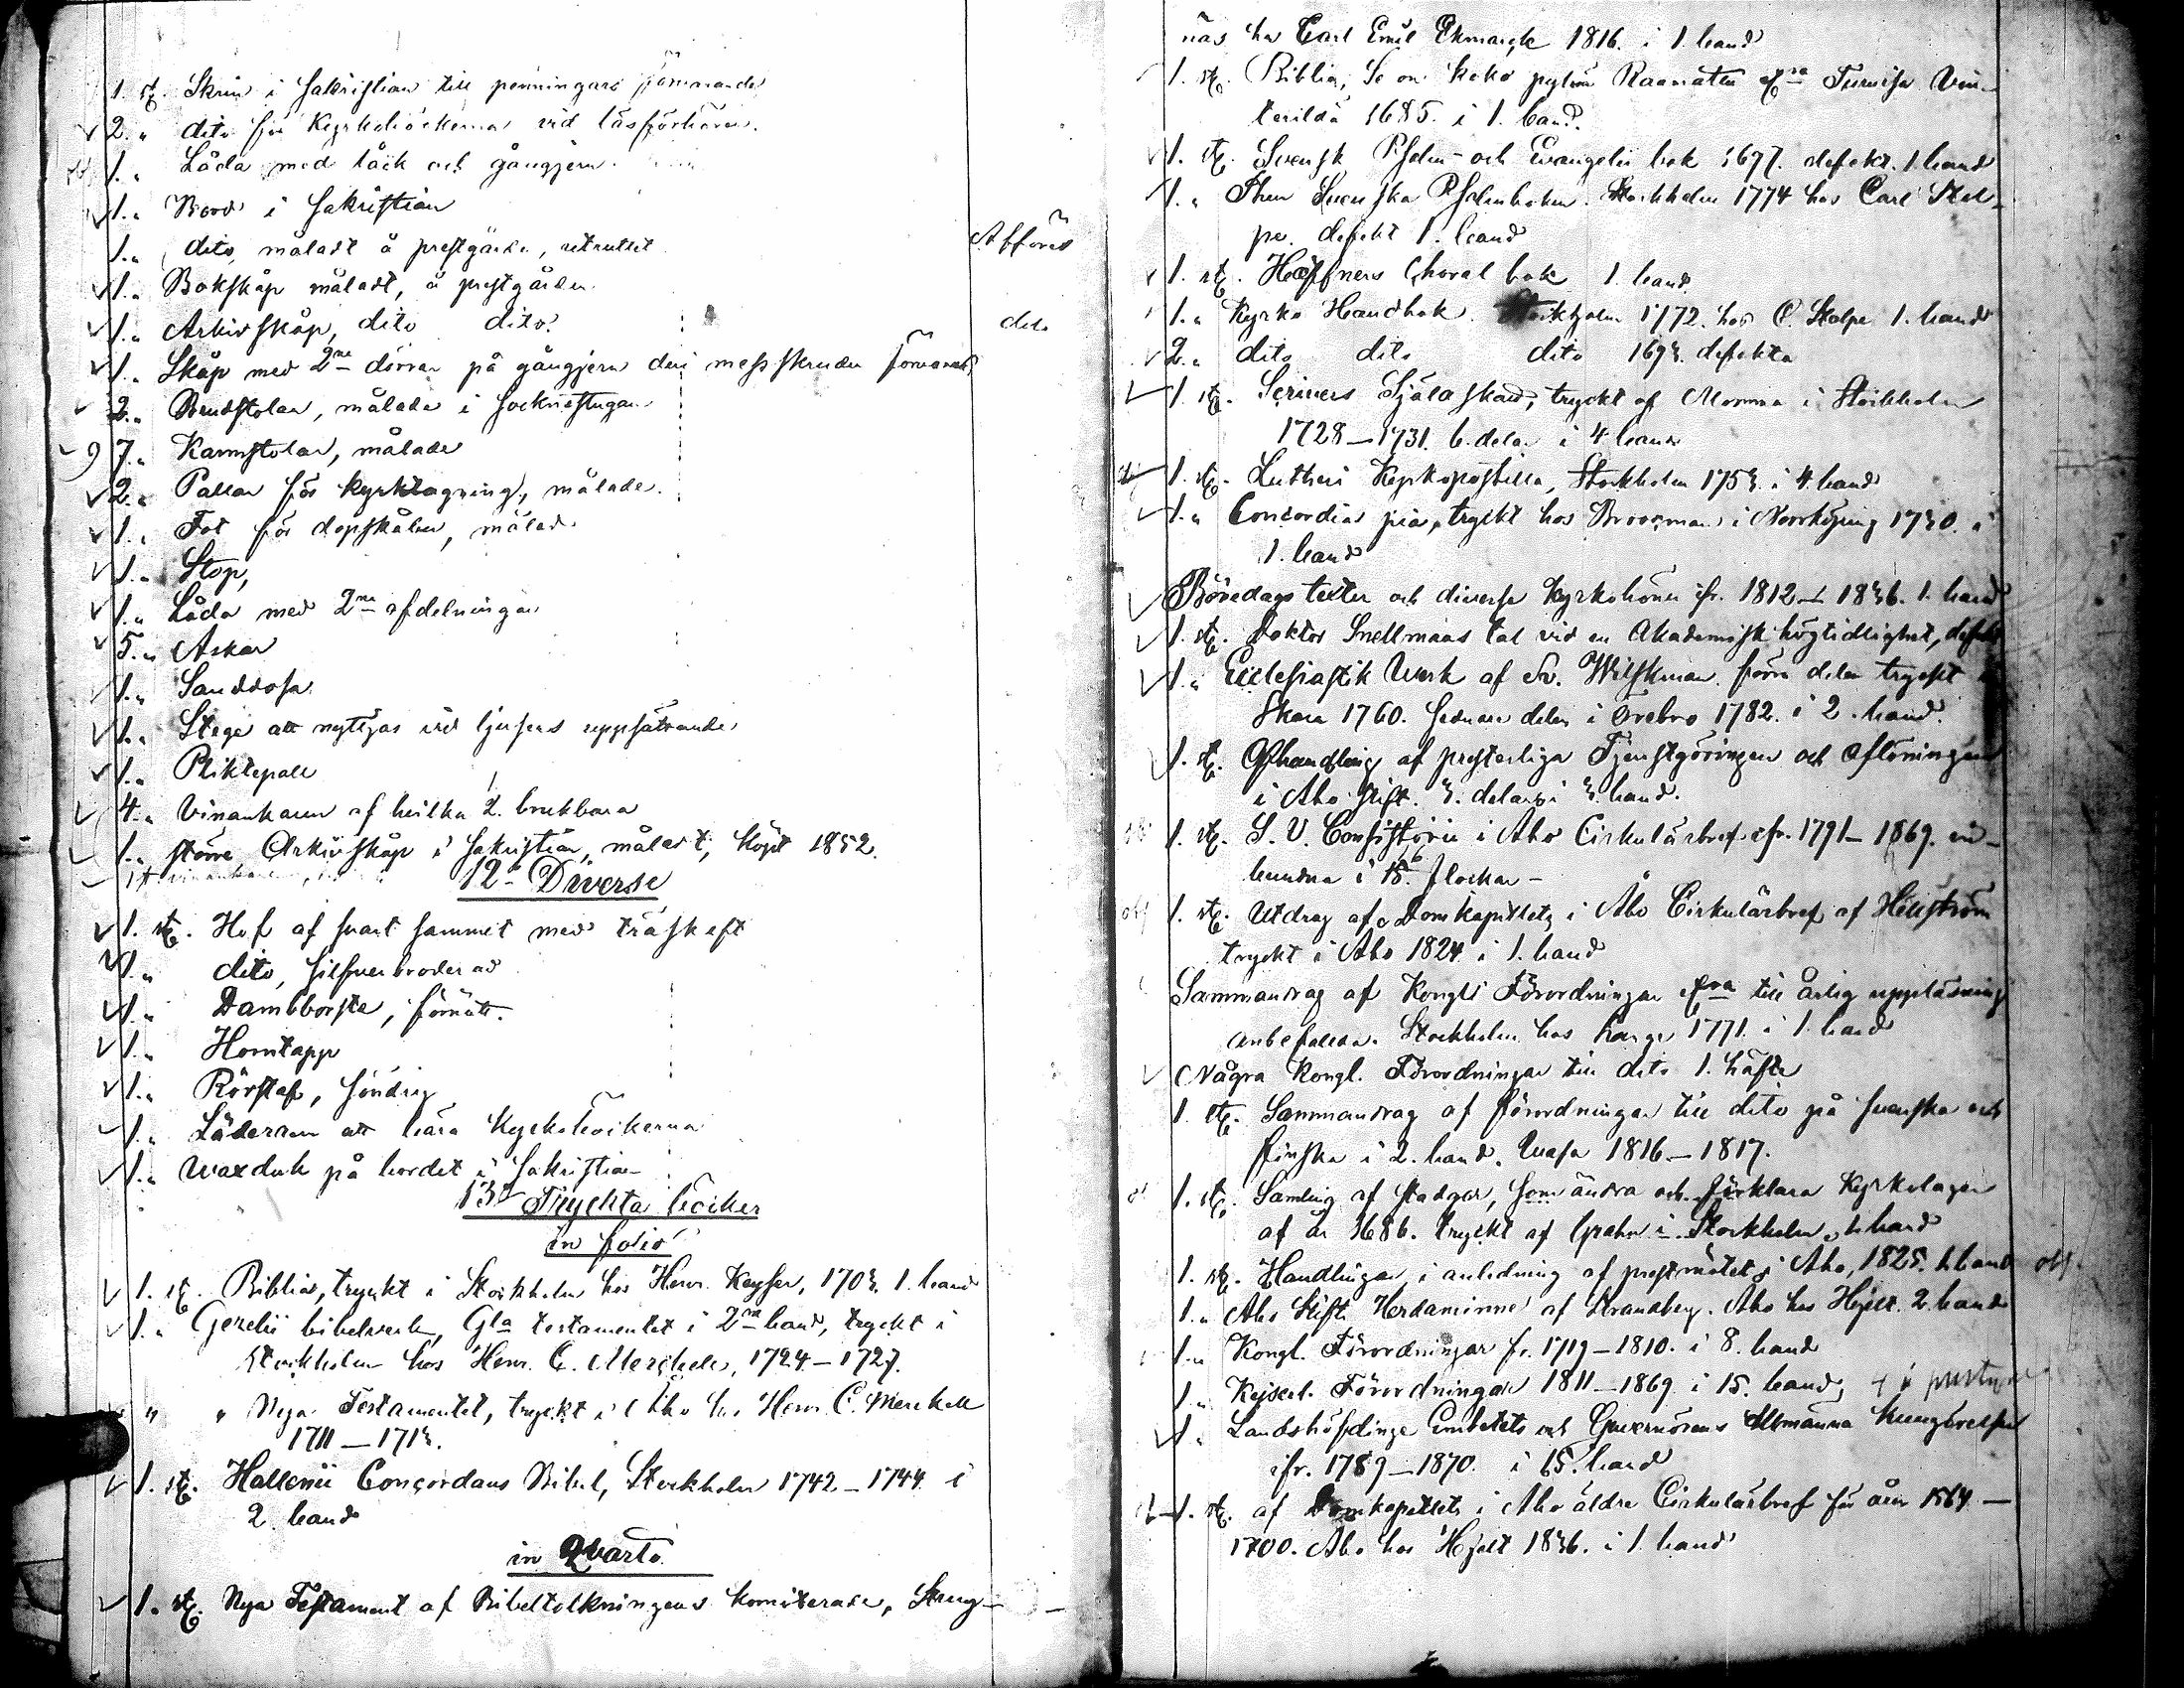 1. st. Skrin i sakristian till penningars förvarande
✓ 2. " dito för Kyrkoböckerna vid läsförhören.
1. " Låda med låck och gångjern
✓ 1. " Bord i sakristian
1. " dito, måladt å prestgården, utruttet Afföres
✓ 1. " Bokskåp måladt, å prestgården
✓ 1. " Arkivskåp, dito dito. dito
✓ 1. " Skåp med 2ne dörrar på gångjern deri messskruden förvaras
✓ 2. " Brudstolar, målade i sockenstugan
✓ 9 7. " Karmstolar, målade
✓ 2. " Pallar för kyrktagning, målade.
✓ 1. " Fot för dopskålen, målad
✓ 1. " Stop,
✓ 1. " Låda med 2ne afdelningar
✓ 5. " Askar
✓ 1. " Sanddosa
✓ 1. " Stege att nyttjas vid ljusens uppsättande
✓ 1. " Pliktepall
✓ 4. " Vinankaren af hvilka 2. brukbara
✓ 1. " större Arkivskåp i sakristian, måladt, köpt 1852.
12o Diverse
✓ 1. st. Hof af svart sammet med träskaft
✓ 1. " dito, silfverbroderad
✓ 1. " Dambborste, förnött.
✓ 1. " Horntapp
✓ 1. " Rörstaf, söndrig
✓ 1. " Läderrem att bära Kyrkoböckerna
✓ 1. " Waxduk på bordet i sakristian
13o Tryckta böcker
in folio
✓ 1. st. Biblia, tryckt i Stockholm hos Henr. Keyser, 1703. 1. band
✓ 1. " Gezelii bibelverk, Gla testamentet i 2ne band, tryckt i
Stockholm hos Henr. C. Merckell, 1724–1727.
" " Nya Testamentet, tryckt i Åbo hos Henr. C. Merckell
1711–1713.
✓ 1. st. Hallenii Concordans Bibel, Stockholm 1742–1744 i
2. band
in Quarto
✓ 1. st. Nya Testament af Bibeltolkningens komiterade, Streng-
näs hos Carl Emil Ekmarck 1816. i 1. band
1. st. Biblia, Se on koko pyhä Raamattu
1685. i 1. band.
✓ 1. st. Svensk Psalm- och Evangelii bok 1697. defekt. 1. band
1. " Then Svenska Psalmboken. Stockholm 1774 hos Carl Stol-
pe. defekt 1. band
✓ 1. st. Hæffners Choral bok 1. band
1. " Kyrko Handbok. Stockholm 1772. hos C. Stolpe 1. band
✓ 2. " dito dito dito 1693. defekta
✓ 1. st. Scrivers Själaskatt, tryckt af Momma i Stockholm
1728–1731. 6. delar i 4. band
1. st. Lutheri Kyrkopostilla, Stockholm 1753. i 4. band
✓ 1. " Concordia pia, tryckt hos Broocman i Norrköping 1730. i
1. band
✓ Bönedags texter och diverse Kyrkoböner ifr. 1812–1836. 1. band
✓ 1. st. Doktor Snellmans tal vid en Akademisk högtidlighet, defekt
✓ 1. " Ecclesiastik Verk af Sv. Wilskman. förra delen tryckt i
Skara 1760. sednare delen i Örebro 1782. i 2. band.
✓ 1. st. Afhandling af presterliga Tjenstgöringen och Aflöningen
i Åbo stift. 3. delar i 3. band.
1. st. S. V. Consistorii i Åbo Cirkulärbref ifr. 1791–1869. in-
bundna i 15. 6 flockar –
1. st. Utdrag af Domkapitlets i Åbo Cirkulärbref af Hellström
tryckt i Åbo 1824 i 1. band
Sammandrag af Kongl: Förordningar till årlig uppläsning
anbefallda. Stockholm hos 1771. i 1. band
✓ Några Kongl. Förordningar till dito 1. häfte
1. st. Sammandrag af förordningar till dito på svenska och
finska i 2. band. Wasa 1816–1817.
1. st. Samling af stadgar, som ändra och förklara Kyrkolagen
af år 1686. tryckt af Grahn i Stockholm, 1. band
1. st. Handlingar i anledning af prestmötet i Åbo, 1825. 1. band obf.
1. " Åbo Stifts Herdaminne af Strandberg. Åbo hos Hjelt. 2. band
1. " Kongl. Förordningar fr. 1719–1810. i 8. band
1. " Kejserl. Förordningar 1811–1869 i 15. band,
✓ 1. " Landshöfdinge Embetets och Guvernörens Allmänna Kungörelser
ifr. 1789–1870. i 15. band
1. st. af Domkapitlets i Åbo äldre Cirkulärbref för åren 1564–
1700. Åbo hos Hjelt 1836. i 1. band